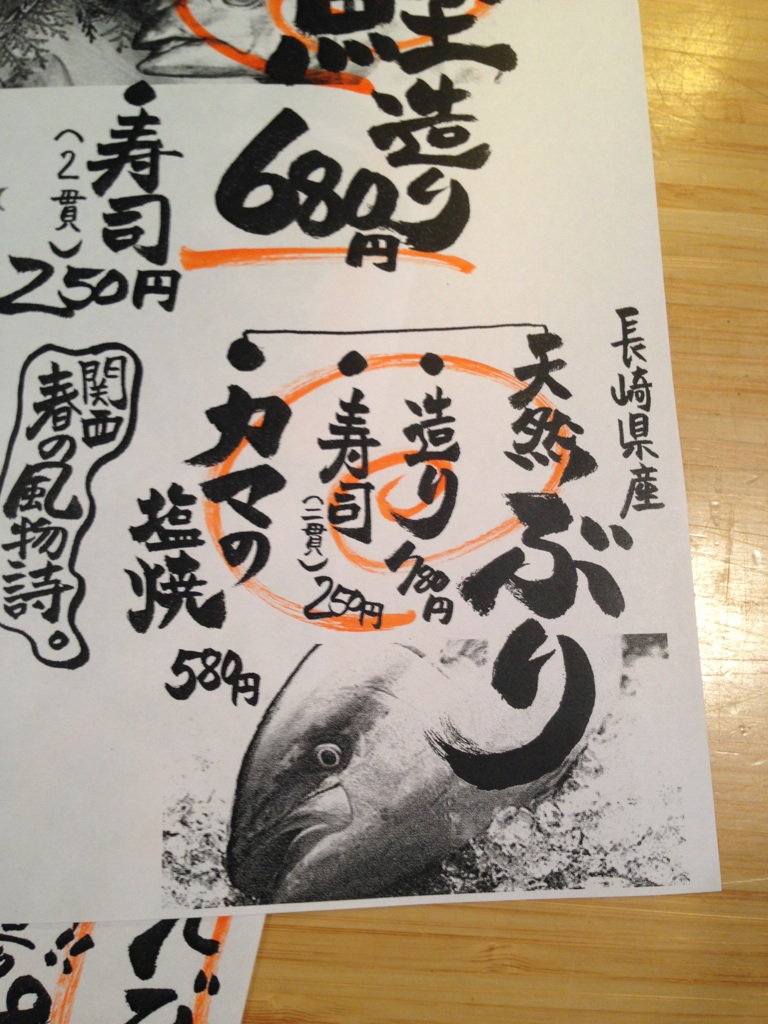 鮭
造り
680円
・寿司
（2貫）
250円
長崎県産
天然ぶり
・造り
780円
・寿司
（二貫）
250円
・カマの
塩焼
580円
関西
春の風物詩。